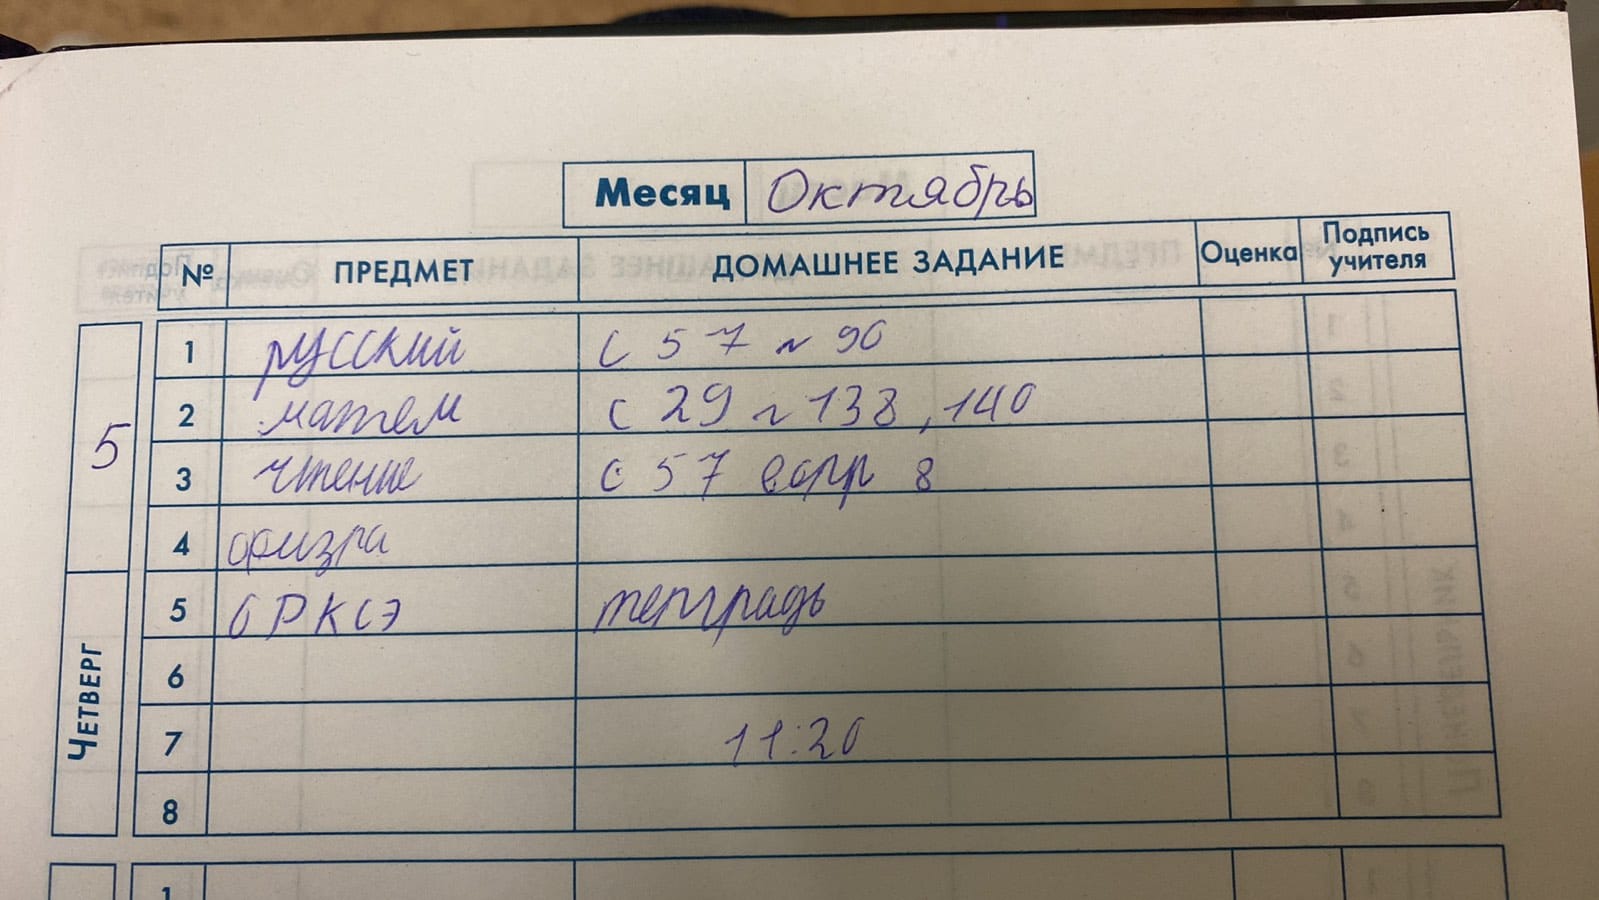 Месяц Октябрь
№ ПРЕДМЕТ ДОМАШНЕЕ ЗАДАНИЕ Оценка Подпись учителя
5
ЧЕТВЕРГ
1 русский с 57 № 90
2 матем с 29 № 138, 140
3 чтение с 57 вопр 8
4 физра
5 ОРКСЭ тетрадь
6
7 11:20
8
1